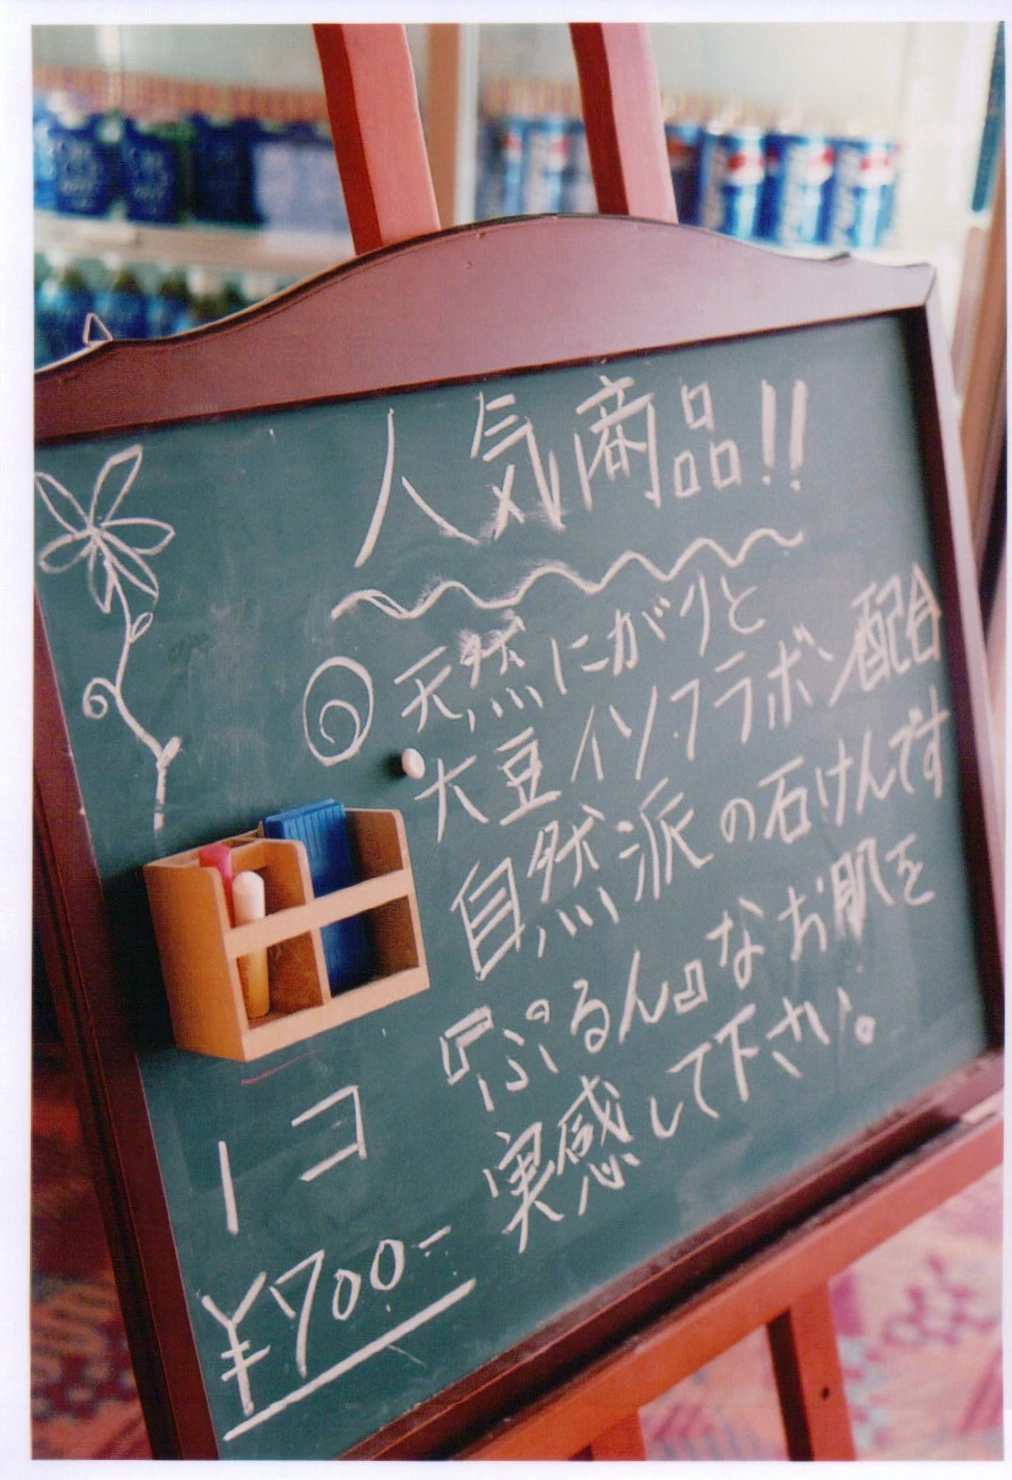 人気商品!!
◎天然にがりと
大豆イソフラボン配合
自然派の石けんです
『ぷるん』なお肌を
実感して下さい。
1コ
¥700-